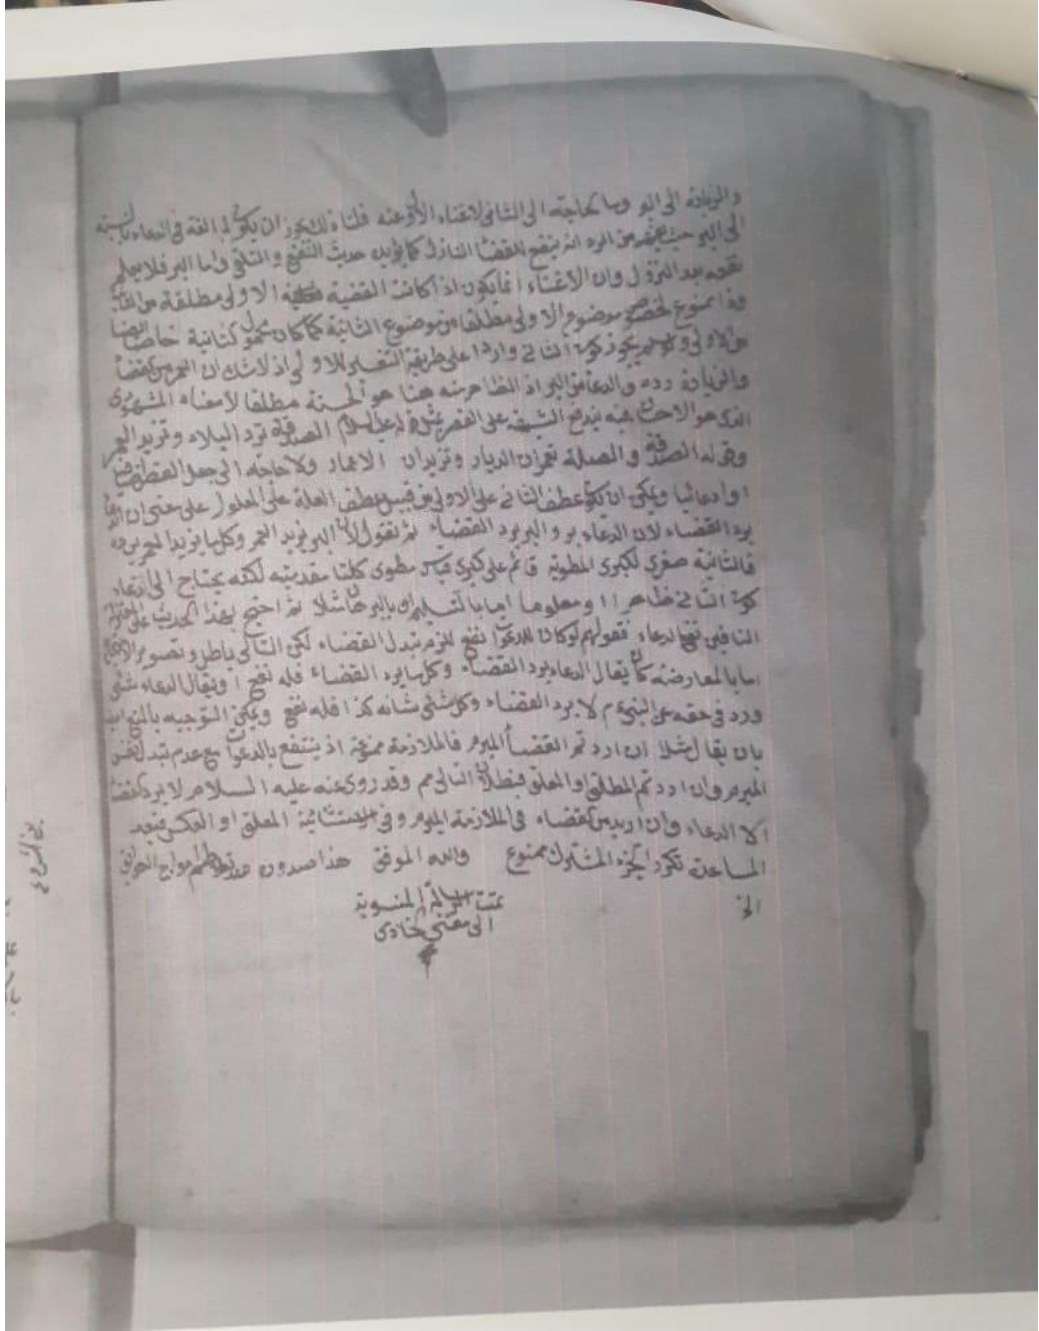 والزيادة الى البر وما الحاجة الى الثاني لاغناء الاول عنه قلنا ذلك يجوز ان يكون المبالغة في الدعاء بالنسبة
الى البر حيث من الرد انه ينفع للقضاء النازل كما يؤيده حديث النفع و واما البر فلا يعلم
نفعه بعد النزول وان الاغناء انما يكون اذا كانت القضية الاولى مطلقة من
وذا ممنوع موضوع الاولى مطلقا من موضوع الثانية كما كان محمول الثانية خاصا ايضا
من الاولى يجوز كون الثاني واردا على طريقة التفسير للاولى اذ لا شك ان العمر من القضاء
والزيادة رده والدعاء من البر اذ الظاهر منه هنا هو الحسنة مطلقا لا معناه المشهورى
الذى هو الاحسان فيه على الفقر مثل قوله عليه السلام الصدقة ترد البلاء وتزيد العمر
وقوله الصدقة والصلة تعمران الديار وتزيدان الاعمار ولا حاجة الى جعل القصر
او ادعائيا ويمكن ان يكون عطف الثاني على الاولى من قبيل عطف العلة على المعلول على معنى ان الدعاء
يرد القضاء لان الدعاء بر والبر يرد القضاء ثم نقول لان البر يزيد العمر وكل ما يزيد العمر يرده
فالثانية صغرى لكبرى المطوية قائم على كبرى قياس مطوى كلتا مقدمتيه لكنه يحتاج الى ادعاء
كون الثاني ظاهرا ومعلوما اما بالتسليم او بالبرهان مثلا ثم احتج بهذا الحديث على
النافين نفع الدعاء فقولهم لو كان للدعوات نفع للزم تبدل القضاء لكن التالى باطل وتصوير الاحتجاج
اما بالمعارضة كان يقال الدعاء يرد القضاء وكل ما يرد القضاء فله نفع او يقال الدعاء شئ
ورد في حقه عن النبي عم لا يرد القضاء وكل شئ شانه كذا فله نفع ويمكن التوجيه بالمنع
بان يقال مثلا ان اردتم القضاء المبرم فالملازمة ممنوعة اذ ينتفع بالدعوات مع عدم تبدل القضاء
المبرم وان اردتم المطلق او المعلق فبطلان التالى مم وقد روى عنه عليه السلام لا يرد القضاء
الا الدعاء وان اريد من القضاء في الملازمة المبرم وفي الاستثنائية المعلق او العكس فبعد
المساعدة تكرر الجزء المشترك ممنوع والله الموفق هذا صدر من
الخ
تمت الرسالة المنسوبة
الى مفتى خادى